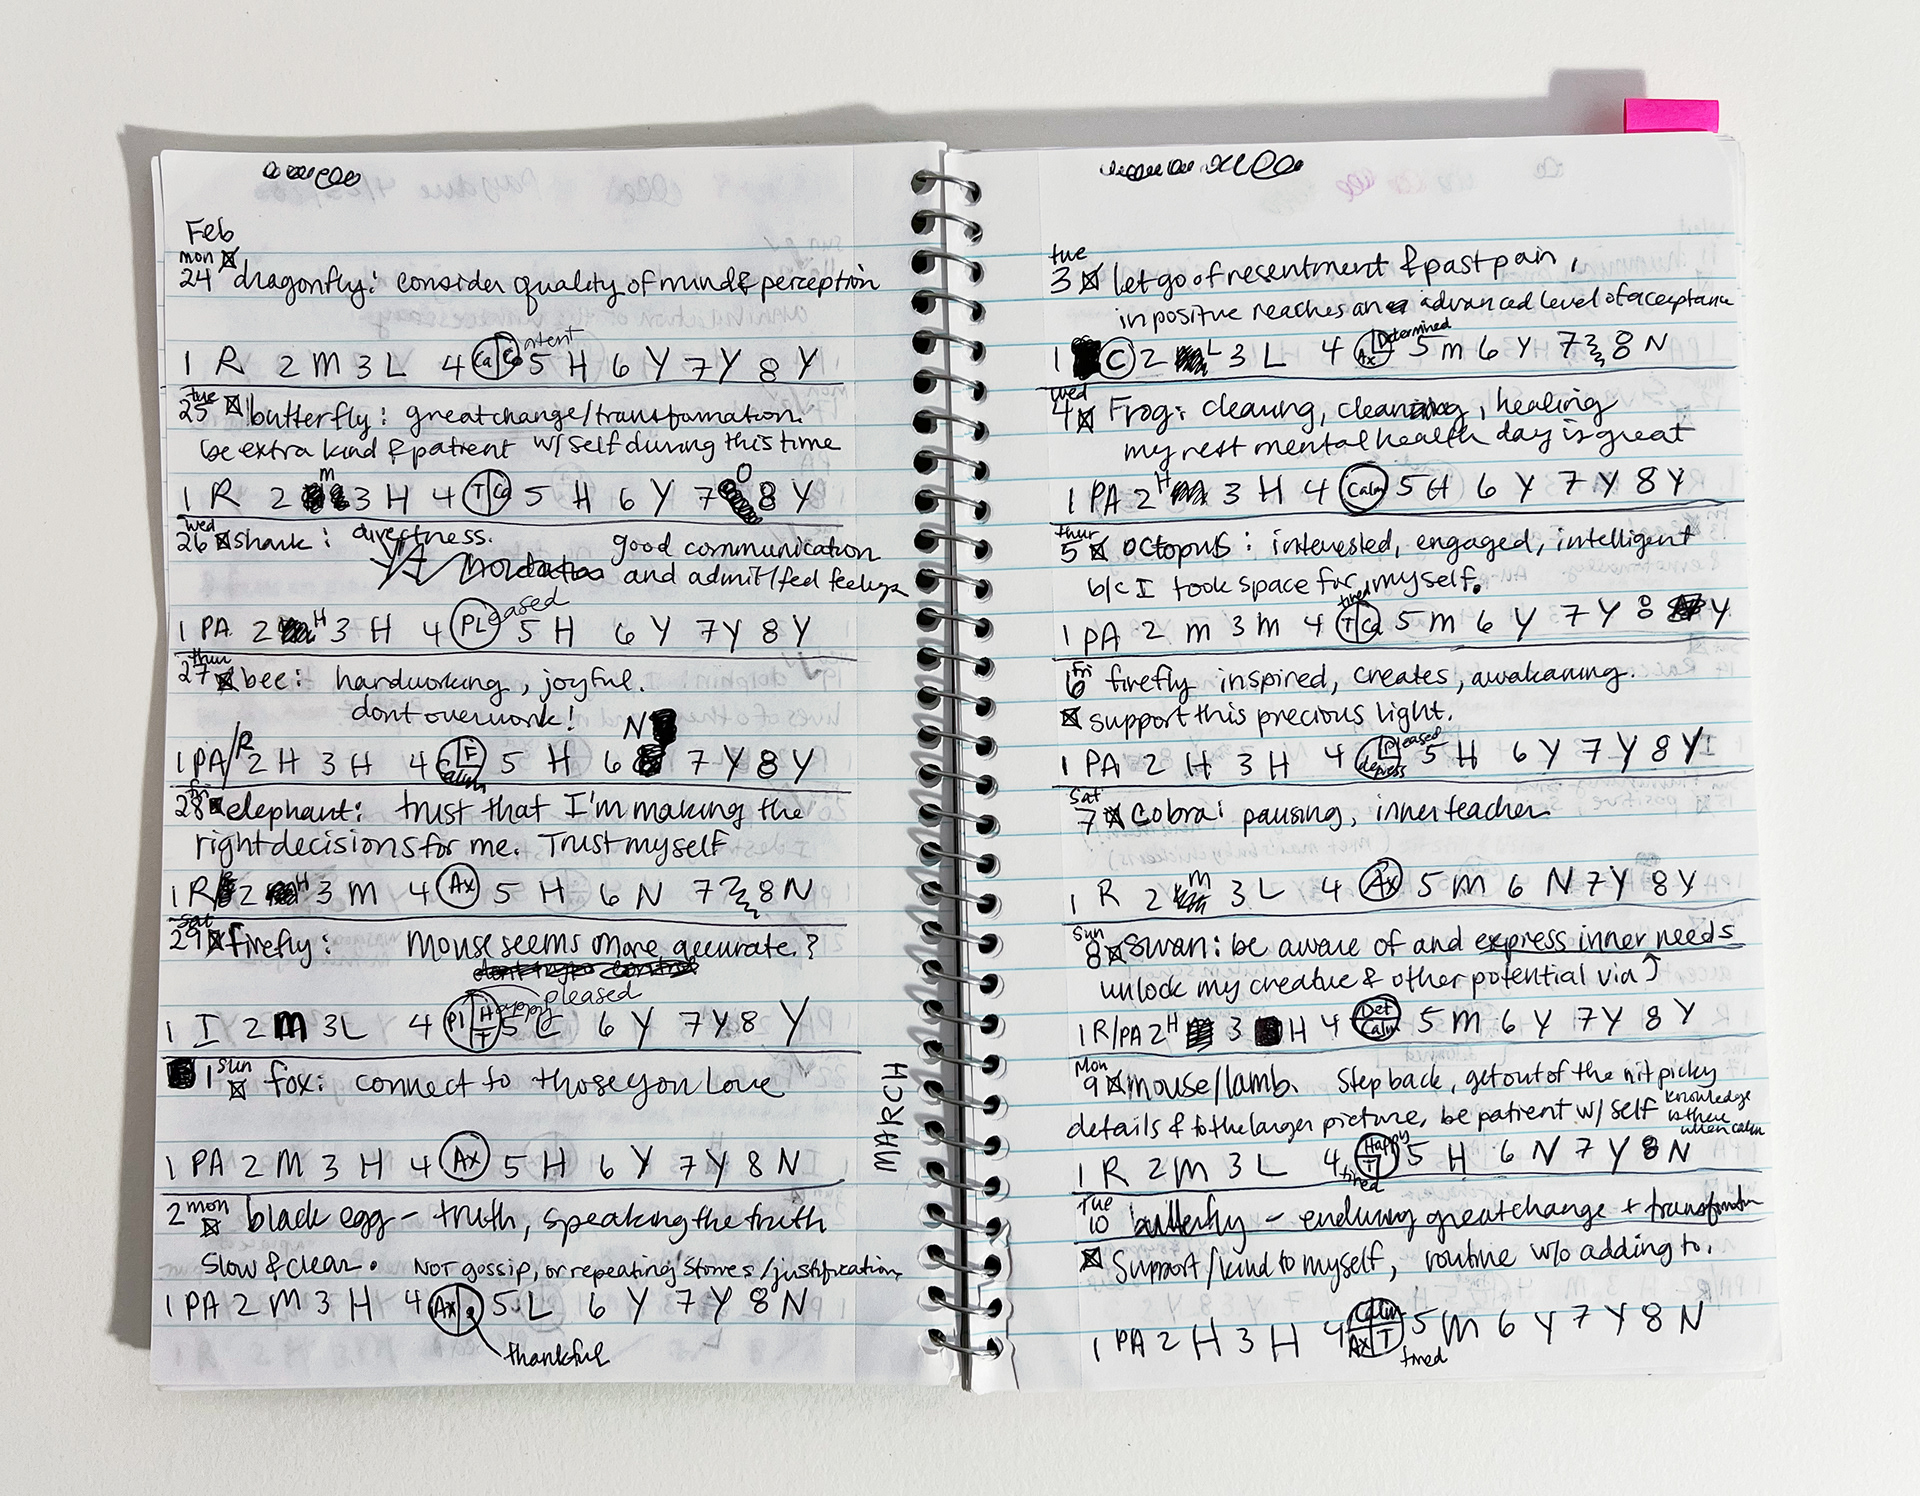 Feb
mon
24 dragonfly: consider quality of mind & perception
1 R 2 M 3 L 4 Ca Co ntent 5 H 6 Y 7 Y 8 Y
tue
25 butterfly: great change/transformation.
be extra kind & patient w/ self during this time
1 R 2 m 3 H 4 T Ca 5 H 6 Y 7 O 8 Y
wed
26 shark: directness. good communication
and admit/feel feelings
1 PA 2 H 3 H 4 PL eased 5 H 6 Y 7 Y 8 Y
thur
27 bee: hardworking, joyful.
dont overwork!
1 PA/R 2 H 3 H 4 F calm 5 H 6 N 7 Y 8 Y
fri
28 elephant: trust that I'm making the
right decisions for me. Trust myself
1 R 2 H 3 M 4 Ax 5 H 6 N 7 8 N
sat
29 firefly: mouse seems more accurate?
pleased
1 I 2 m 3 L 4 Pl Happy T 5 L 6 Y 7 Y 8 Y
1 sun fox: connect to those you love
MARCH
1 PA 2 M 3 H 4 Ax 5 H 6 Y 7 Y 8 N
2 mon black egg - truth, speaking the truth
slow & clear. NOT gossip, or repeating stories/justification
1 PA 2 M 3 H 4 Ax 5 L 6 Y 7 Y 8 N
thankful
tue
3 let go of resentment & past pain,
in positive reaches an advanced level of acceptance
1 C 2 L 3 L 4 Ax Determined 5 m 6 Y 7 8 N
wed
4 Frog: clearing, cleansing, healing
my rest mental health day is great
1 PA 2 H 3 H 4 Calm 5 H 6 Y 7 Y 8 Y
thur
5 octopus: interested, engaged, intelligent
b/c I took space for myself.
1 PA 2 m 3 m 4 tired T Ca 5 M 6 Y 7 Y 8 Y
Fri
6 firefly inspired, creates, awakaning.
support this precious light.
1 PA 2 H 3 H 4 pleased depress 5 H 6 Y 7 Y 8 Y
Sat
7 Cobra: pausing, inner teacher
1 R 2 m 3 L 4 Ax 5 M 6 N 7 Y 8 Y
Sun
8 swan: be aware of and express inner needs
unlock my creative & other potential via
1 R/PA 2 H 3 H 4 Det Calm 5 M 6 Y 7 Y 8 Y
Mon
9 mouse/lamb. Step back, get out of the nit picky
details & to the larger picture, be patient w/ self knowledge is there when calm
1 R 2 M 3 L 4 Happy T tired 5 H 6 N 7 Y 8 N
Tue
10 butterfly - enduring great change + transformation
Support/kind to myself, routine w/o adding to.
1 PA 2 H 3 H 4 Calm Ax T tired 5 M 6 Y 7 Y 8 N